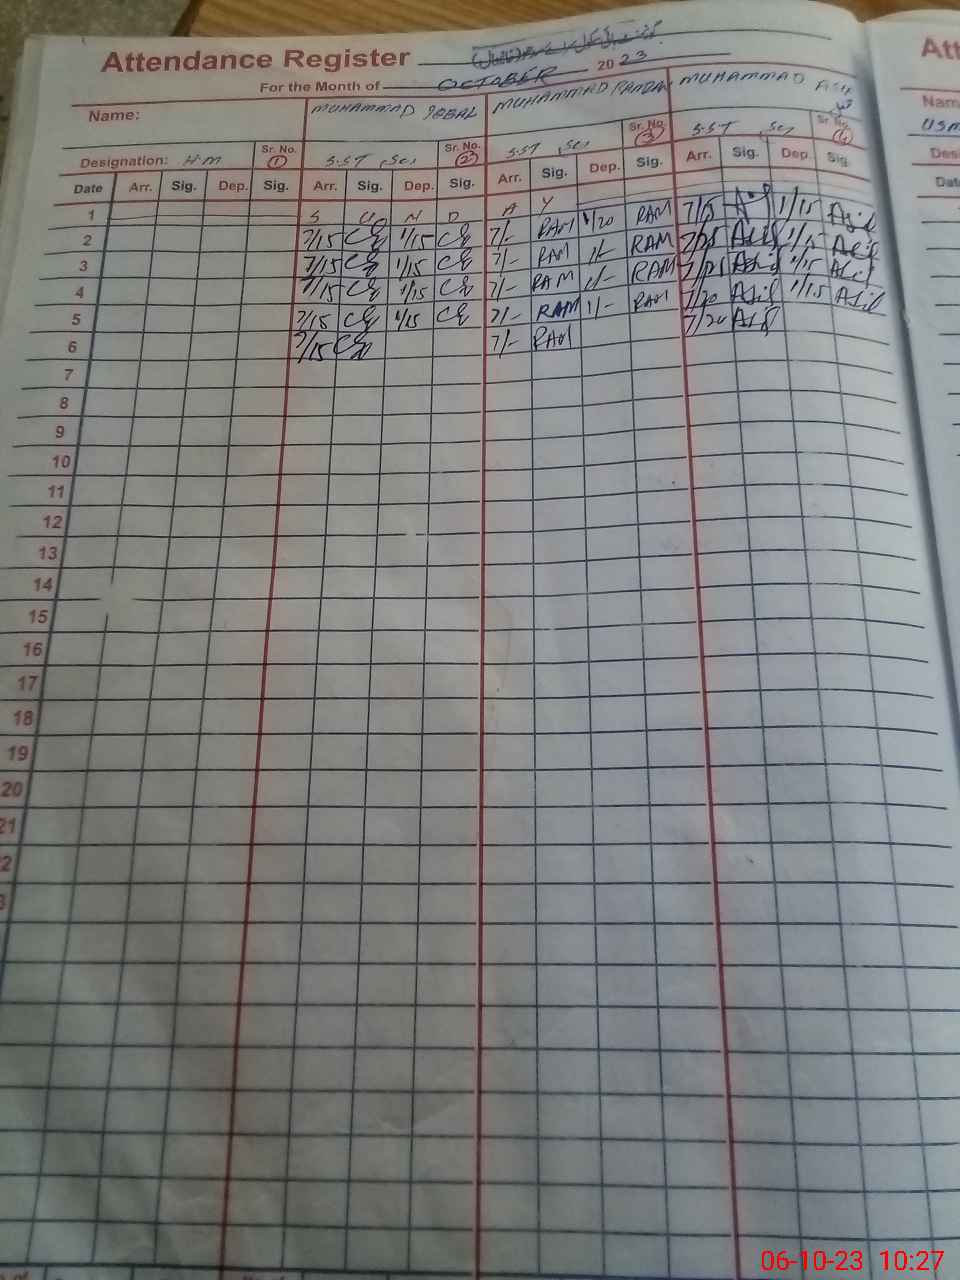 Attendance Register
For the Month of OCTOBER 2023
Att
Name: MUHAMMAD IQBAL MUHAMMAD MUHAMMAD ASIF
Nam
USM
Designation: H.M Sr. No. 1 S.ST, Sci Sr. No. 2 S.ST, Sci Sr. No. 3 S.ST, Sci Sr. No. 4
Desi
Date Arr. Sig. Dep. Sig. Arr. Sig. Dep. Sig. Arr. Sig. Dep. Sig. Arr. Sig. Dep. Sig.
Dat
1 S U N D A Y
2 7/15 1/15 7/- RAM 1/20 RAM 7/15 Asif 1/15 Asif
3 7/15 1/15 7/- RAM 1/- RAM 7/25 Asif 1/15 Asif
4 7/15 1/15 7/- RAM 1/- RAM 7/25 Asif 1/15 Asif
5 7/15 1/15 7/- RAM 1/- RAM 7/20 Asif 1/15 Asif
6 7/15 7/- RAM 7/20 Asif
7
8
9
10
11
12
13
14
15
16
17
18
19
20
21
2
3
06-10-23 10:27